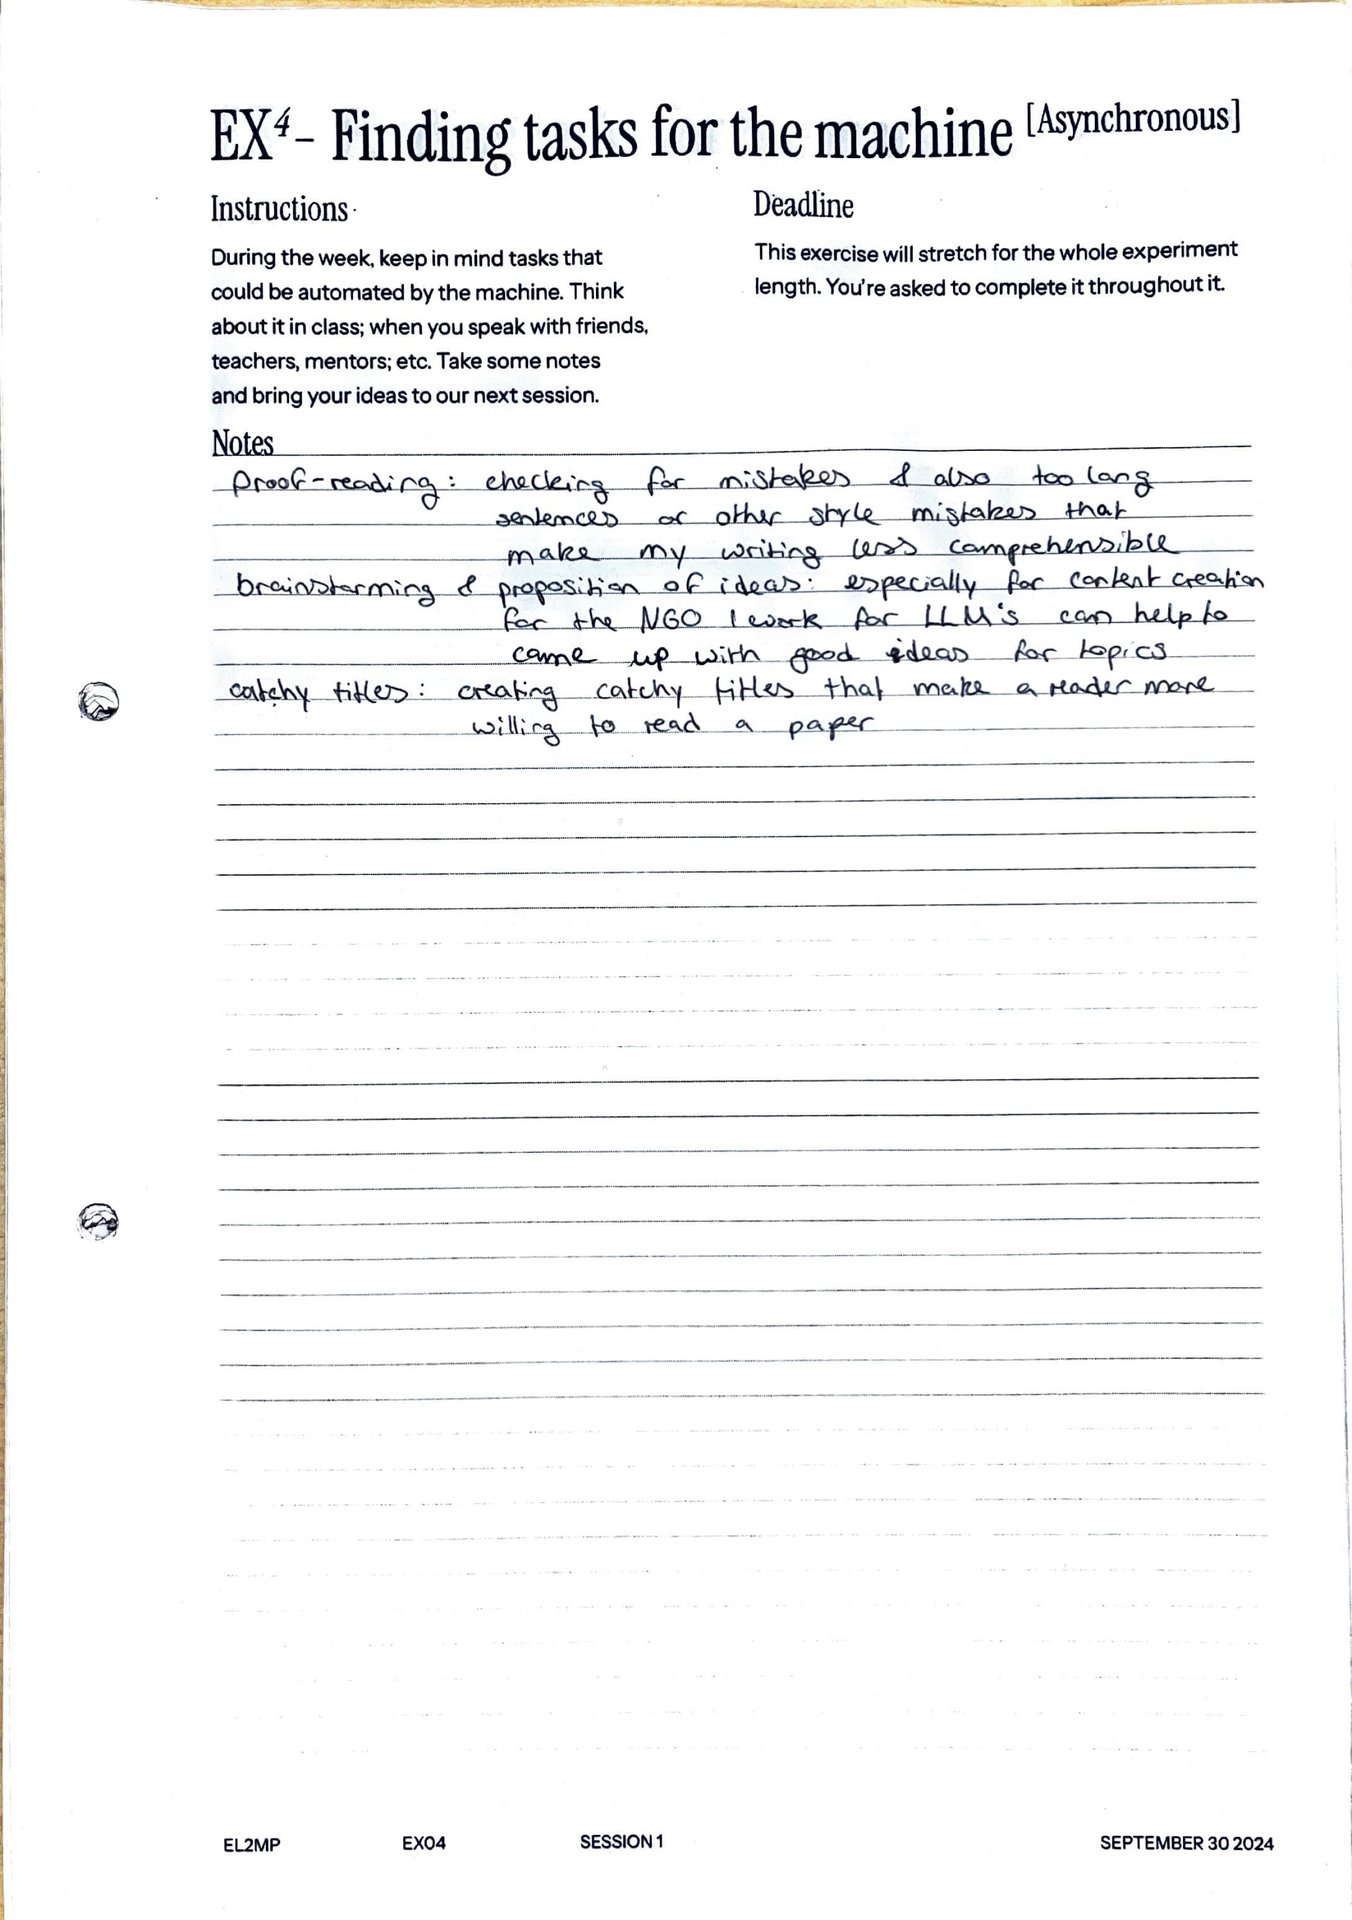 EX4 – Finding tasks for the machine [Asynchronous]
Instructions
During the week, keep in mind tasks that
could be automated by the machine. Think
about it in class; when you speak with friends,
teachers, mentors; etc. Take some notes
and bring your ideas to our next session.
Deadline
This exercise will stretch for the whole experiment
length. You're asked to complete it throughout it.
Notes
Proof-reading: checking for mistakes & also too long
sentences or other style mistakes that
make my writing less comprehensible
brainstorming & proposition of ideas: especially for content creation
for the NGO I work for LLM's can help to
come up with good ideas for topics
catchy titles: creating catchy titles that make a reader more
willing to read a paper
EL2MP EX04 SESSION 1 SEPTEMBER 30 2024